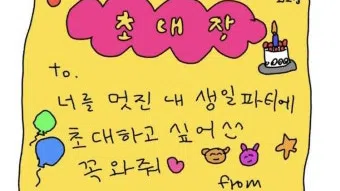 초대장
to.
너를 멋진 내 생일파티에
초대하고 싶어^^
꼭 와줘♥
from